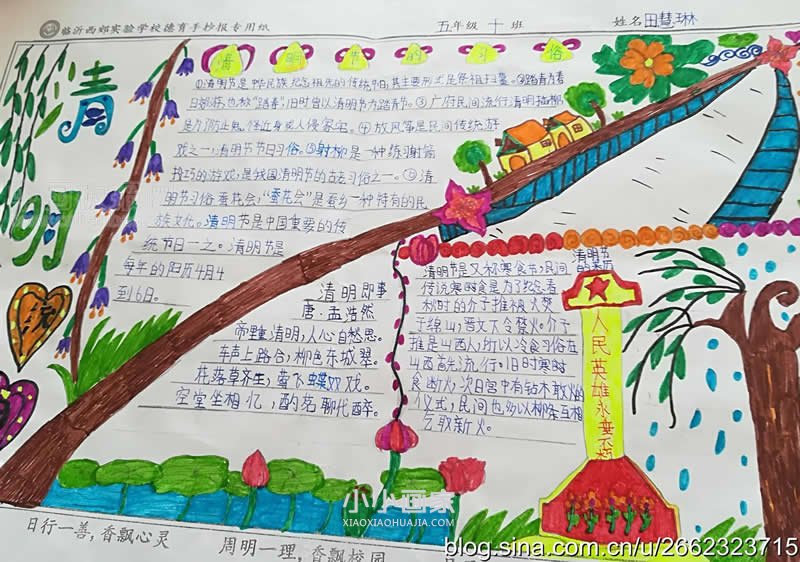 临沂西郊实验学校德育手抄报专用纸
五年级 十 班
姓名 田慧琳
清明
清明节的习俗
①清明节是中华民族纪念祖先的传统节日,其主要形式是祭祖扫墓。②踏青为春
日郊游,也称“踏春”,旧时曾以清明节为踏青节。③广府民间流行清明插柳
是为防止鬼
怪近身或入侵家宅。④放风筝是民间传统游
戏之一,清明节节日习俗。⑤射柳是一种练习射箭
技巧的游戏,是我国清明节的古老习俗之一。⑥清
明节习俗蚕花会,“蚕花会”是蚕乡一种特有的民
族文化。清明节是中国重要的传
统节日一之。清明节是
每年的阳历4月4
到6日。
清明即事
唐·孟浩然
帝里重清明,人心自愁思。
车声上路合,柳色东城翠。
花落草齐生,莺飞蝶双戏。
空堂坐相忆,酌茗聊代醉。
清明节
的来历
清明节是又称寒食节,民间
传说寒时食是为了纪念春
秋时的介子推被火焚
于绵山,晋文下令禁火。介子
推是山西人,所以冷食习俗在
山西首先流行。旧时寒时
食断火,次日宫中有钻木取火的
仪式,民间也多以柳条互相
乞取新火。
人民英雄永垂不朽
小小画家
XIAOXIAOHUAJIA.COM
日行一善,香飘心灵
周明一理,香飘校园
blog.sina.com.cn/u/2662323715